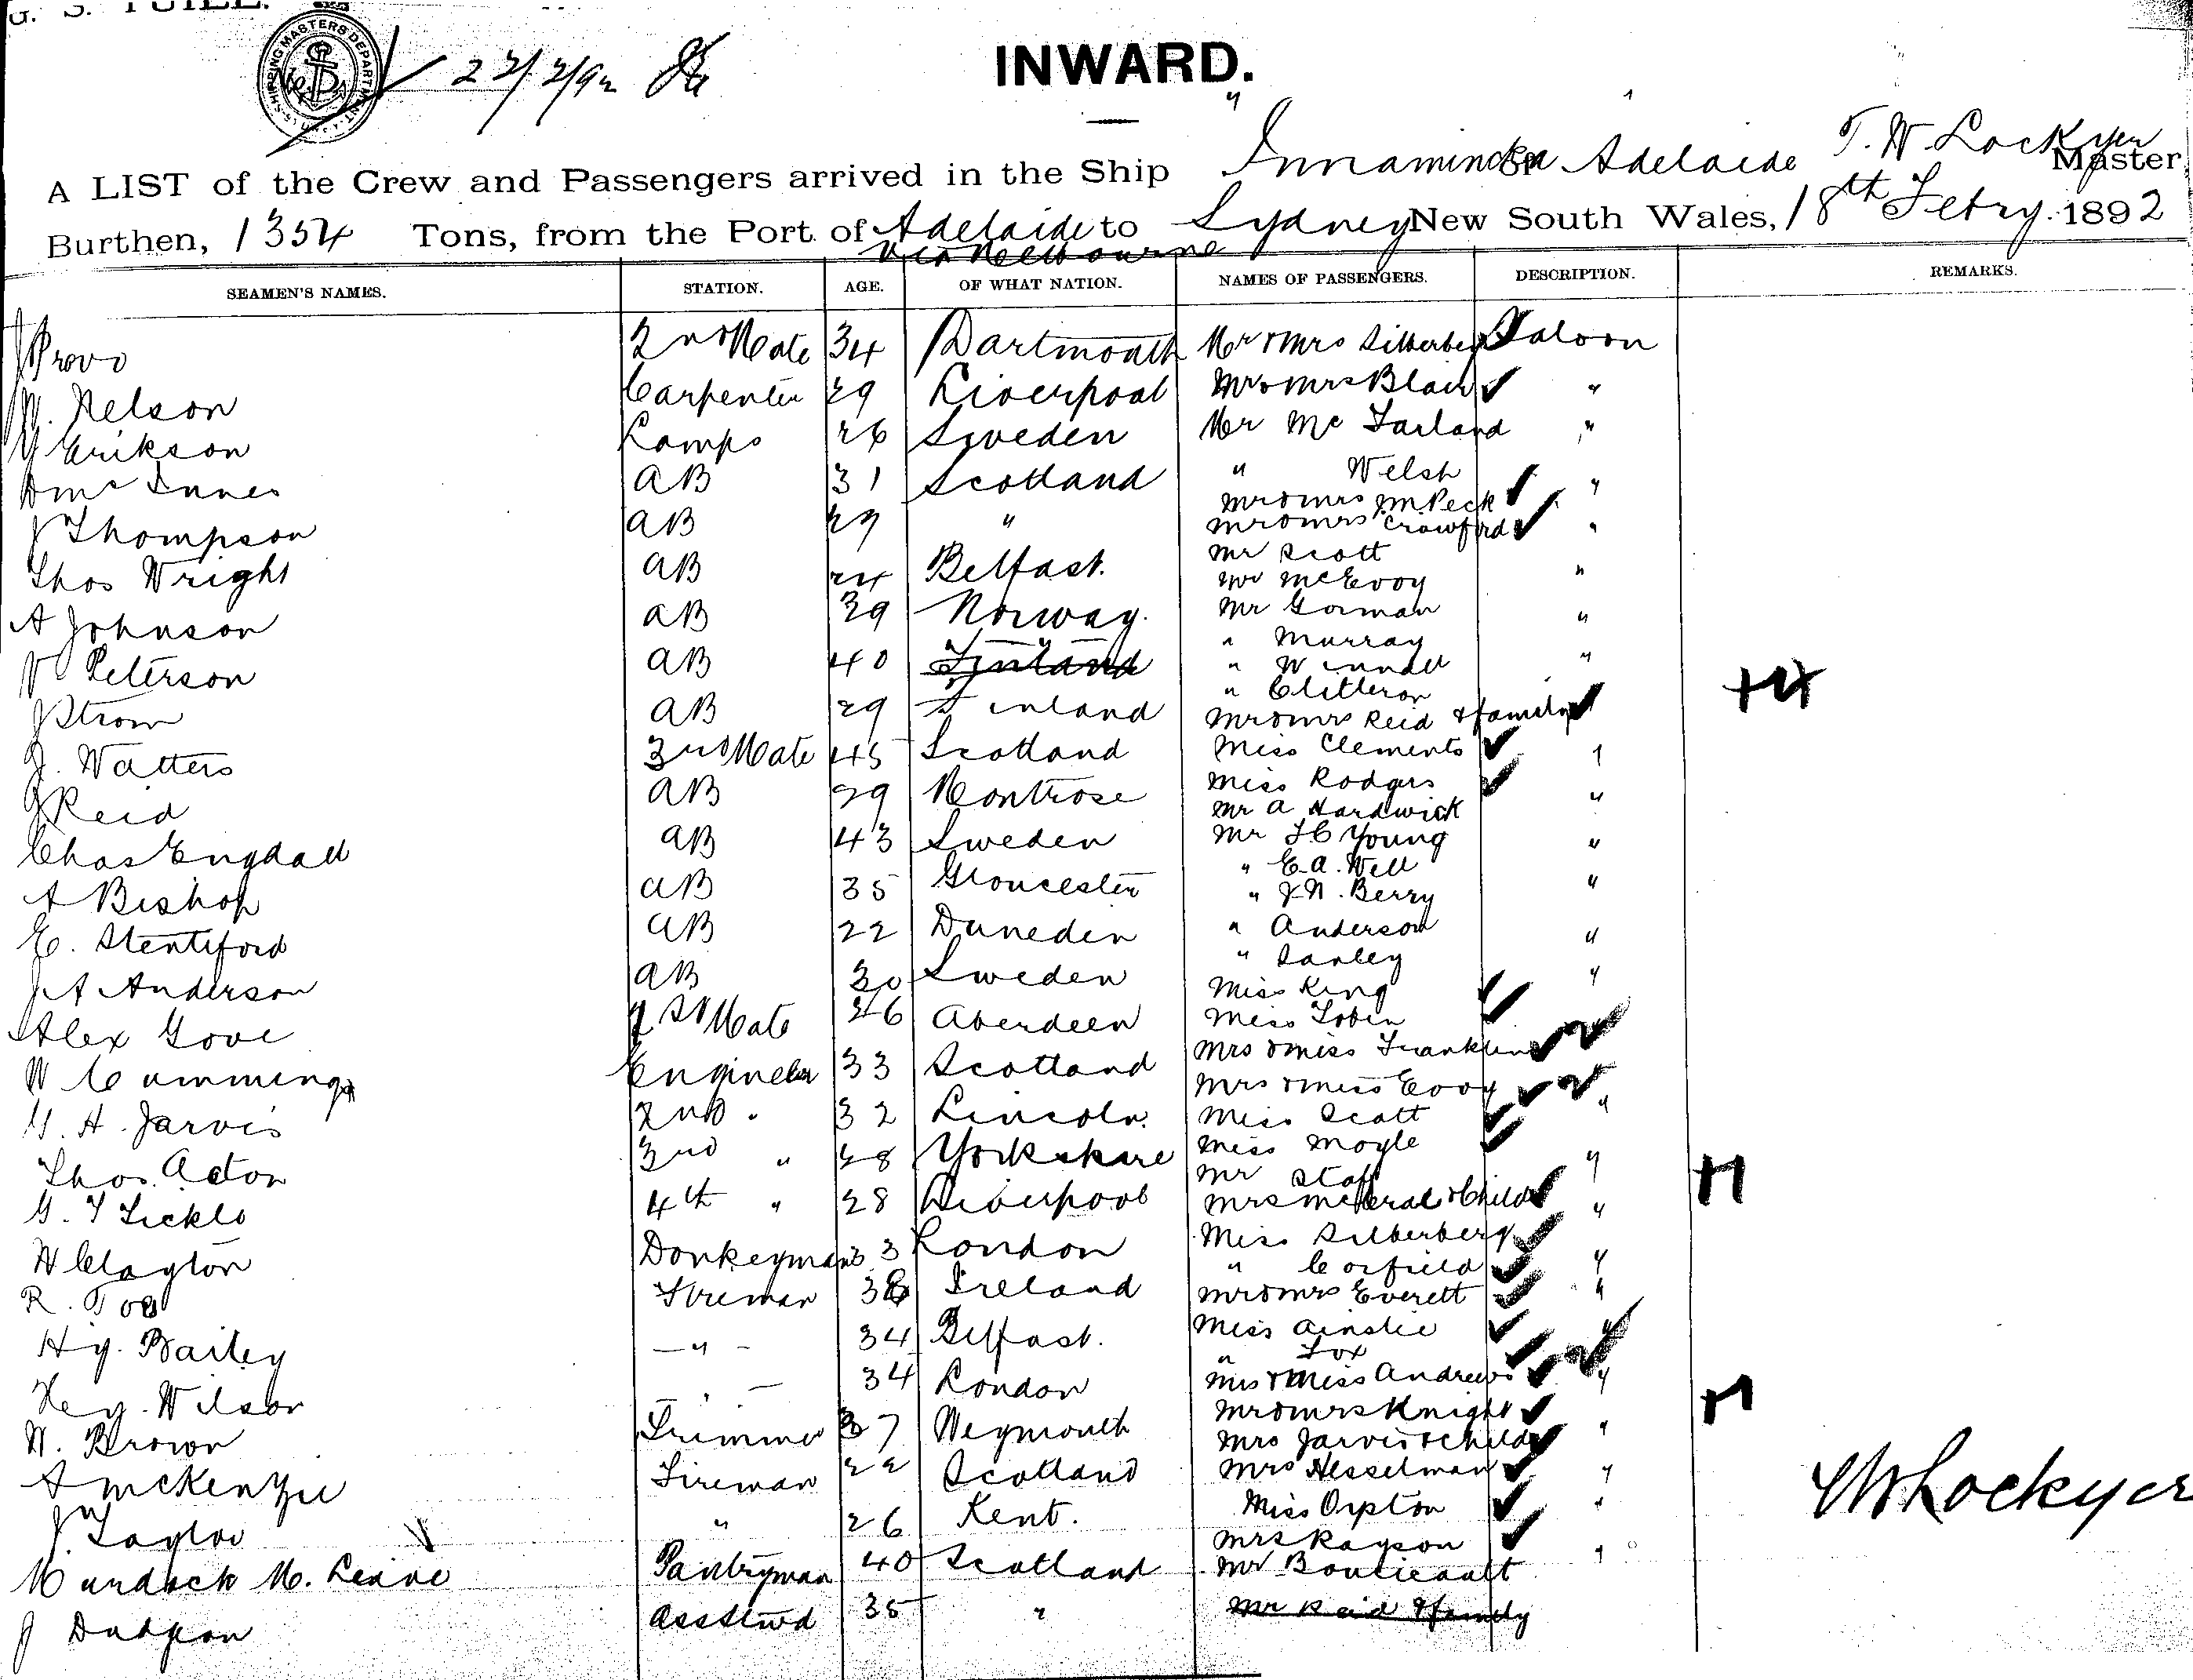 INWARD.
22/2/92
A LIST of the Crew and Passengers arrived in the Ship Innamincka of Adelaide T. W Lockyer Master
Burthen, 1354 Tons, from the Port of Adelaide to Sydney New South Wales, 18th Febry. 1892
via Melbourne
SEAMEN'S NAMES. STATION. AGE. OF WHAT NATION. NAMES OF PASSENGERS. DESCRIPTION. REMARKS.
J Provo 2nd Mate 34 Dartmouth Mr & Mrs Silberberg Saloon
Nelson Carpenter 29 Liverpool Mr & Mrs Blair "
Erikson Lamps 26 Sweden Mr Mc Farland "
D Mc Innes AB 31 Scotland " Welsh
Mr & Mrs Jm Peck "
J Thompson AB 29 " Mr & Mrs Crawford "
Mr Scott
Thos Wright AB 24 Belfast. Mr McEvoy "
A Johnson AB 39 Norway. Mr Gorman "
" Murray
Peterson AB 40 Finland " Winnall "
" Clitteron
J Strom AB 29 Finland Mr & Mrs Reid & family
J. Watters 3rd Mate 45 Scotland Miss Clements "
J Reid AB 29 Montrose Miss Rodgers
Mr A Hardwick "
Chas Engdall AB 43 Sweden Mr F C Young "
" E. A. Well
A Bishop AB 35 Gloucester " J N. Berry "
E. Stentiford AB 22 Dunedin " Anderson "
" Darley
J A Anderson AB 30 Sweden Miss King "
Alex Gove 1st Mate 26 Aberdeen Miss Tobin
W Cummings Engineer 33 Scotland Mrs & Miss Franklin
Mrs & Miss Evoy
G. H. Jarvis 2nd " 32 Lincoln. Miss Scott "
Thos. Acton 3rd " 28 Yorkshire Miss Moyle
Mr Staff "
G. T Tickle 4th " 28 Liverpool Mrs & Child "
H Clayton Donkeyman 33 London Miss Silberberg
" Corfield "
R. Fireman 38 Ireland Mr & Mrs Everett "
Hy. Bailey — " — 34 Belfast. Miss Ainslie "
" Fox
Hey. Wilson " — 34 London Mrs & Miss Andrews "
Mr & Mrs Knight
W. Brown Trimmer 37 Weymouth Mrs Jarvis & Child "
A McKenzie Fireman 22 Scotland Mrs Hesselman "
J Taylor " 26 Kent. Miss Orpton "
Mrs Rayson
Murdoch M. Leane Pantryman 40 Scotland Mr Boucicault "
J Dudgeon Ass Stwd 35 " Mr Reid & family
Lockyer